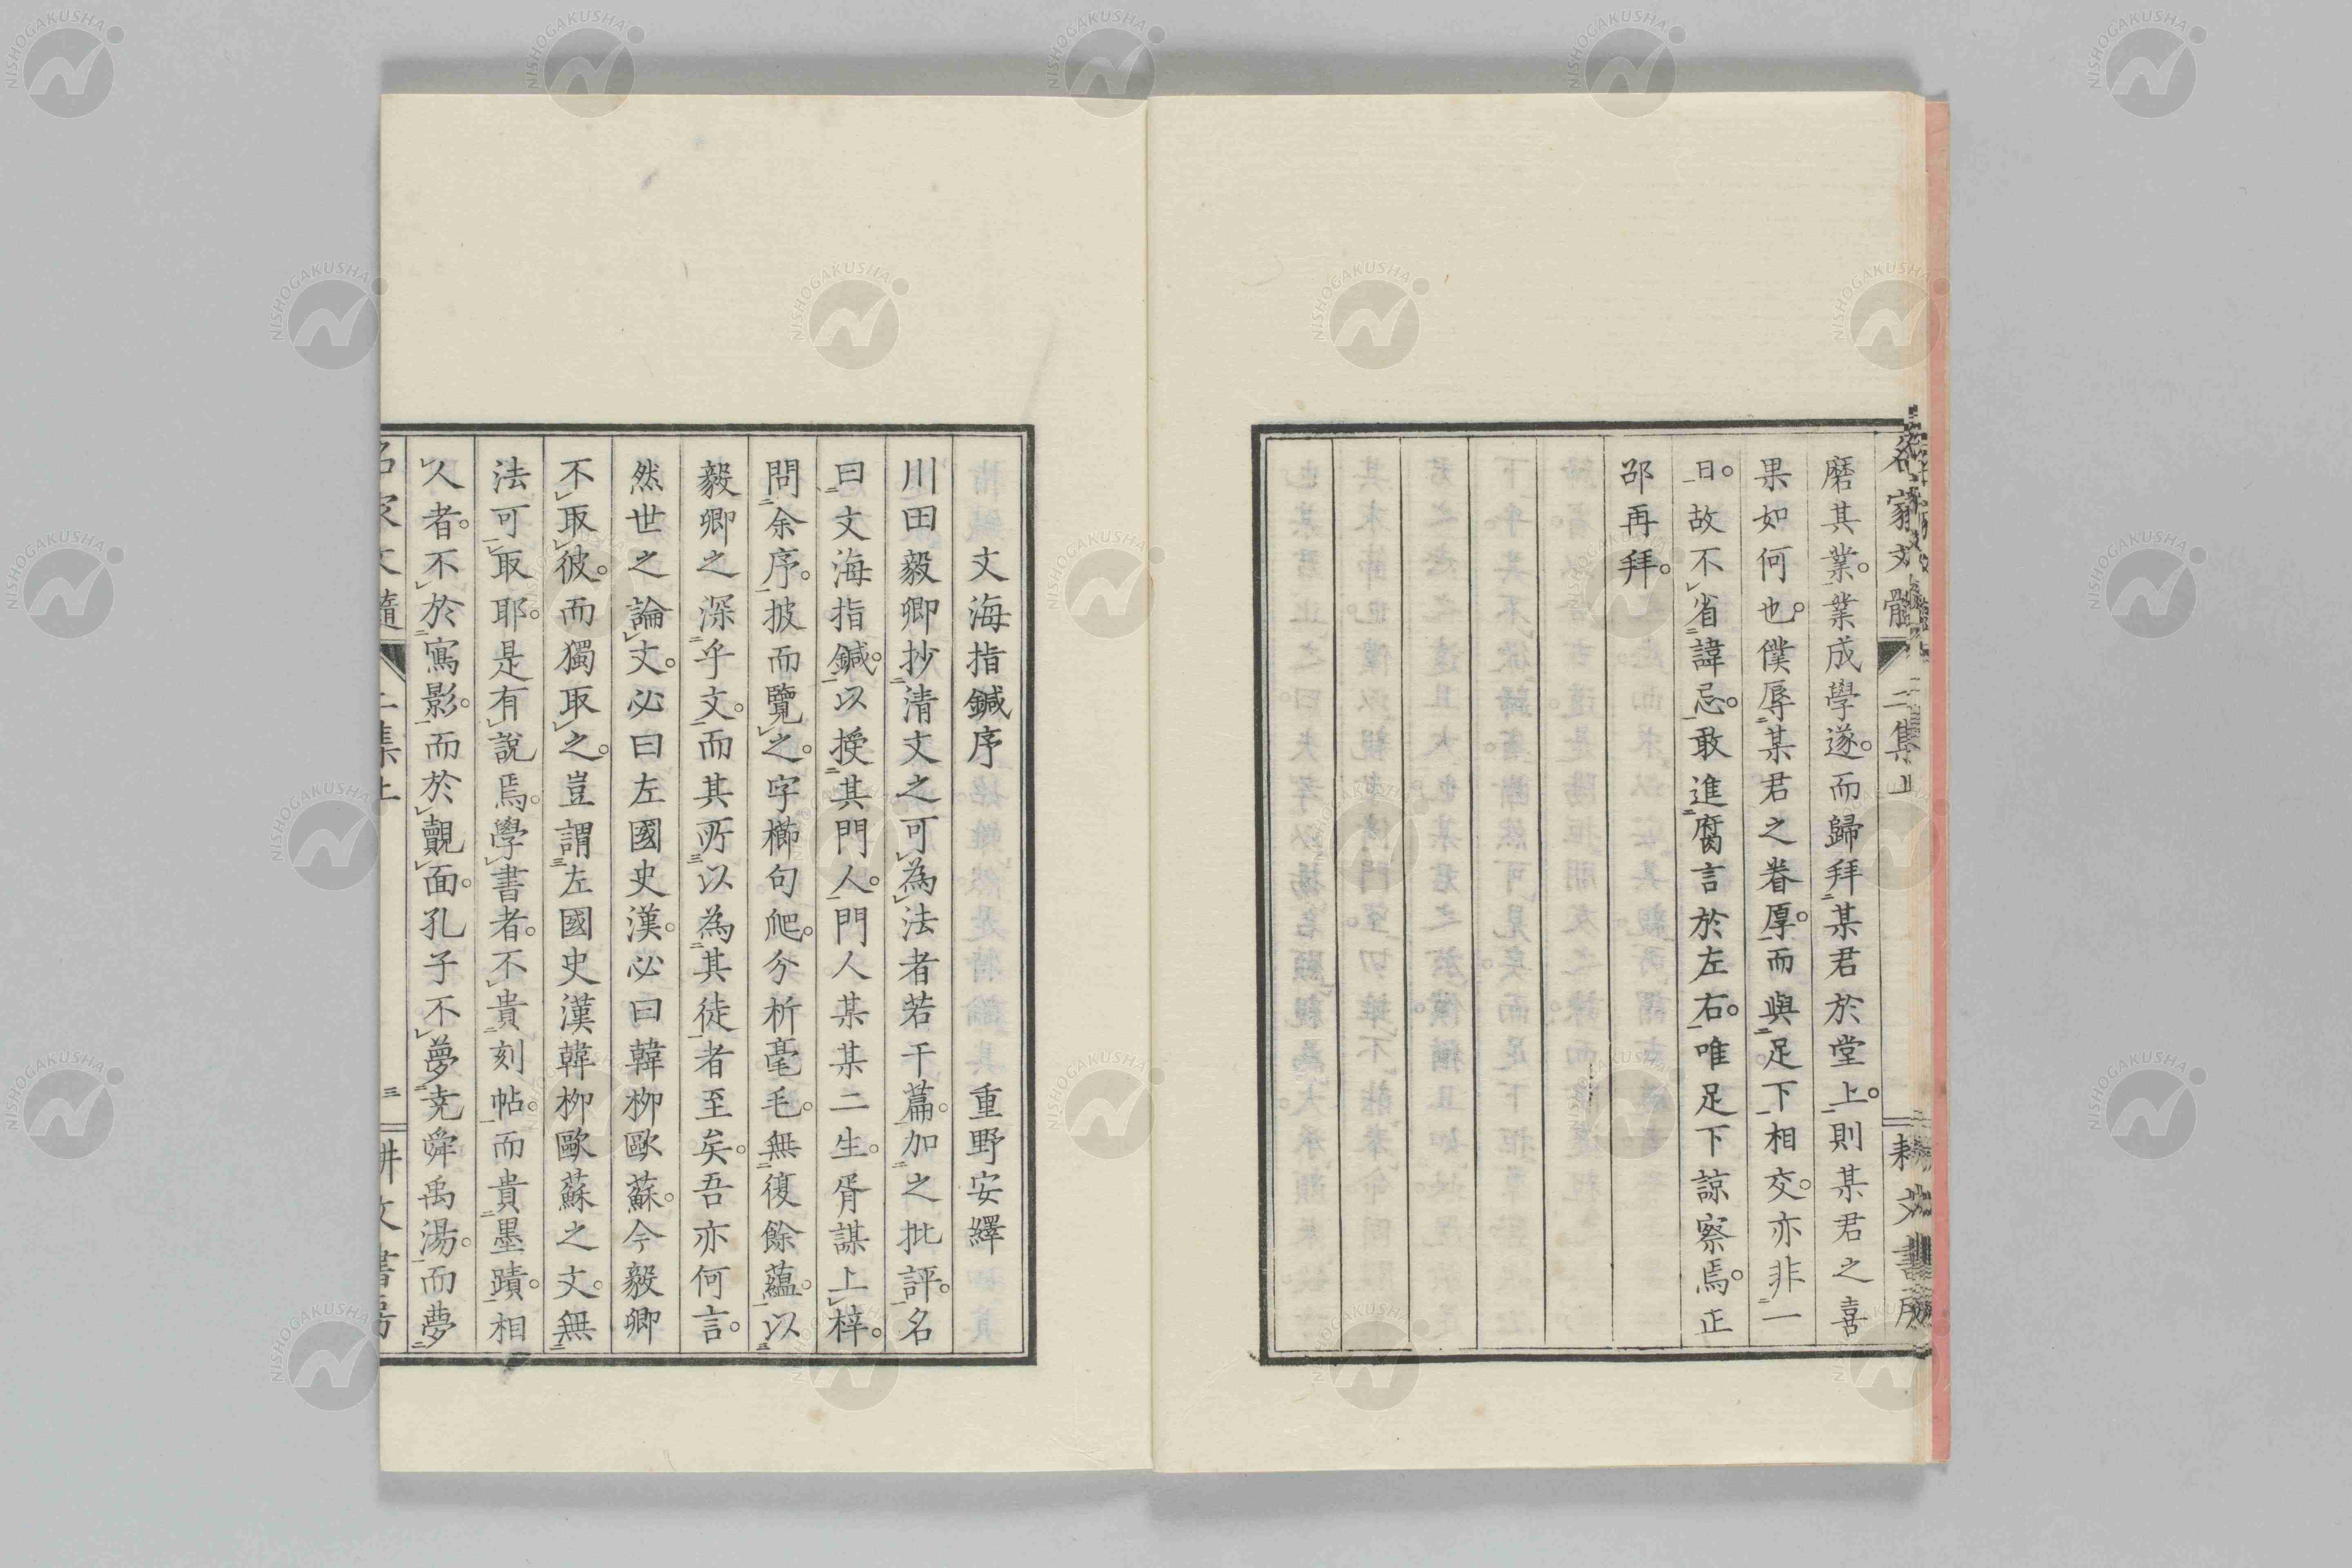 名家文髓 二集上 二 耕文書房
磨其業。業成學遂。而歸拜某君於堂上。則某君之喜
果如何也。僕辱某君之眷厚。而與足下相交。亦非一
日。故不省諱忌。敢進腐言於左右。唯足下諒察焉。正
卲再拜。
文海指鍼序 重野安繹
川田毅卿抄清文之可為法者若干篇。加之批評。名
曰文海指鍼。以授其門人。門人某某二生。胥謀上梓。
問余序。披而覽之。字櫛句爬。分析毫毛。無復餘蘊。以
毅卿之深乎文。而其所以為其徒者至矣。吾亦何言。
然世之論文。必曰左國史漢。必曰韓柳歐蘇。今毅卿
不取彼。而獨取之。豈謂左國史漢韓柳歐蘇之文。無
法可取耶。是有說焉。學書者。不貴刻帖。而貴墨蹟。相
人者。不於寫影。而於覿面。孔子不夢堯舜禹湯。而夢
名家文髓 二集上 三 耕文書房
NISHOGAKUSHA